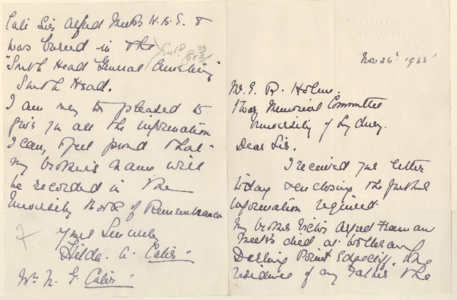 Nov 26th 1932
Mr. E. R. Holme
War Memorial Committee
University of Sydney.
Dear Sir.
I received your letter
today enclosing the further
information required
My brother Victor Alfred
Meeks died at
Darling Point Edgecliff, the
residence of my Father the
late Sir Alfred Meeks K.B.E. &
was buried in the
"South Head General Cemetery"
South Head.
I am very to pleased to
give you all the information
I can, feel proud that
my brother's name will
be recorded in the
University Book of Remembrance
Yours Sincerely
Hilda A.
Mrs N. G.